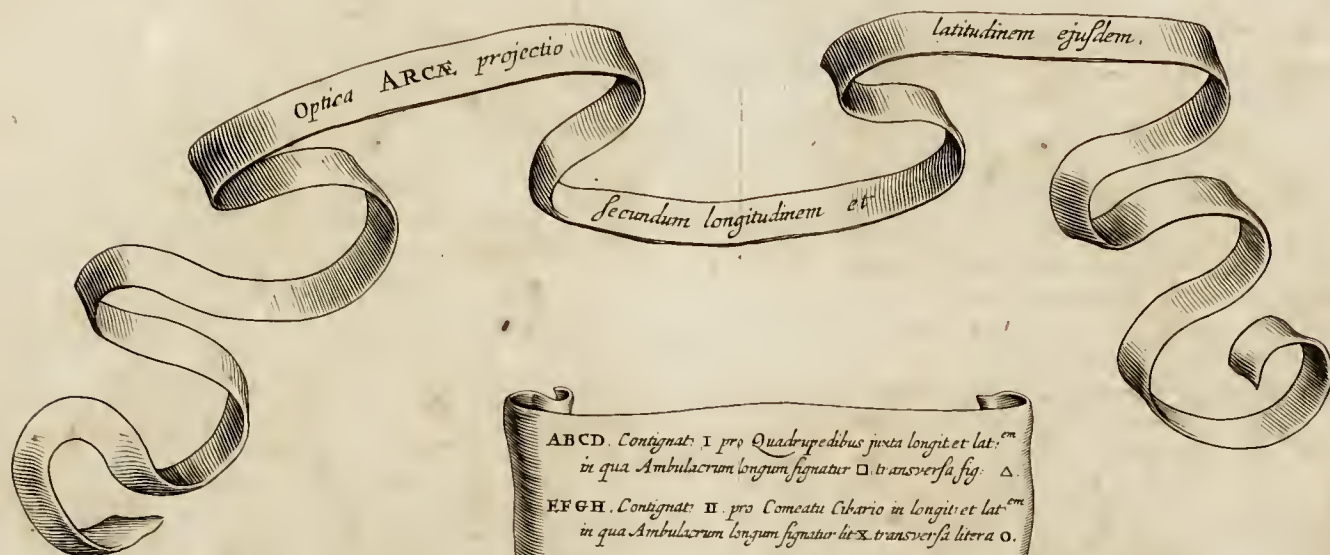 Optica ARCÆ projectio
secundum longitudinem et
latitudinem ejusdem.
ABCD. Contignat: I pro Quadrupedibus juxta longit. et lat:em
in qua Ambulacrum longum signatur □ transversa sig: △.
EFGH. Contignat: II. pro Comeatu Cibario in longit: et lat:em
in qua Ambulacrum longum signatur lit X transversa litera O.